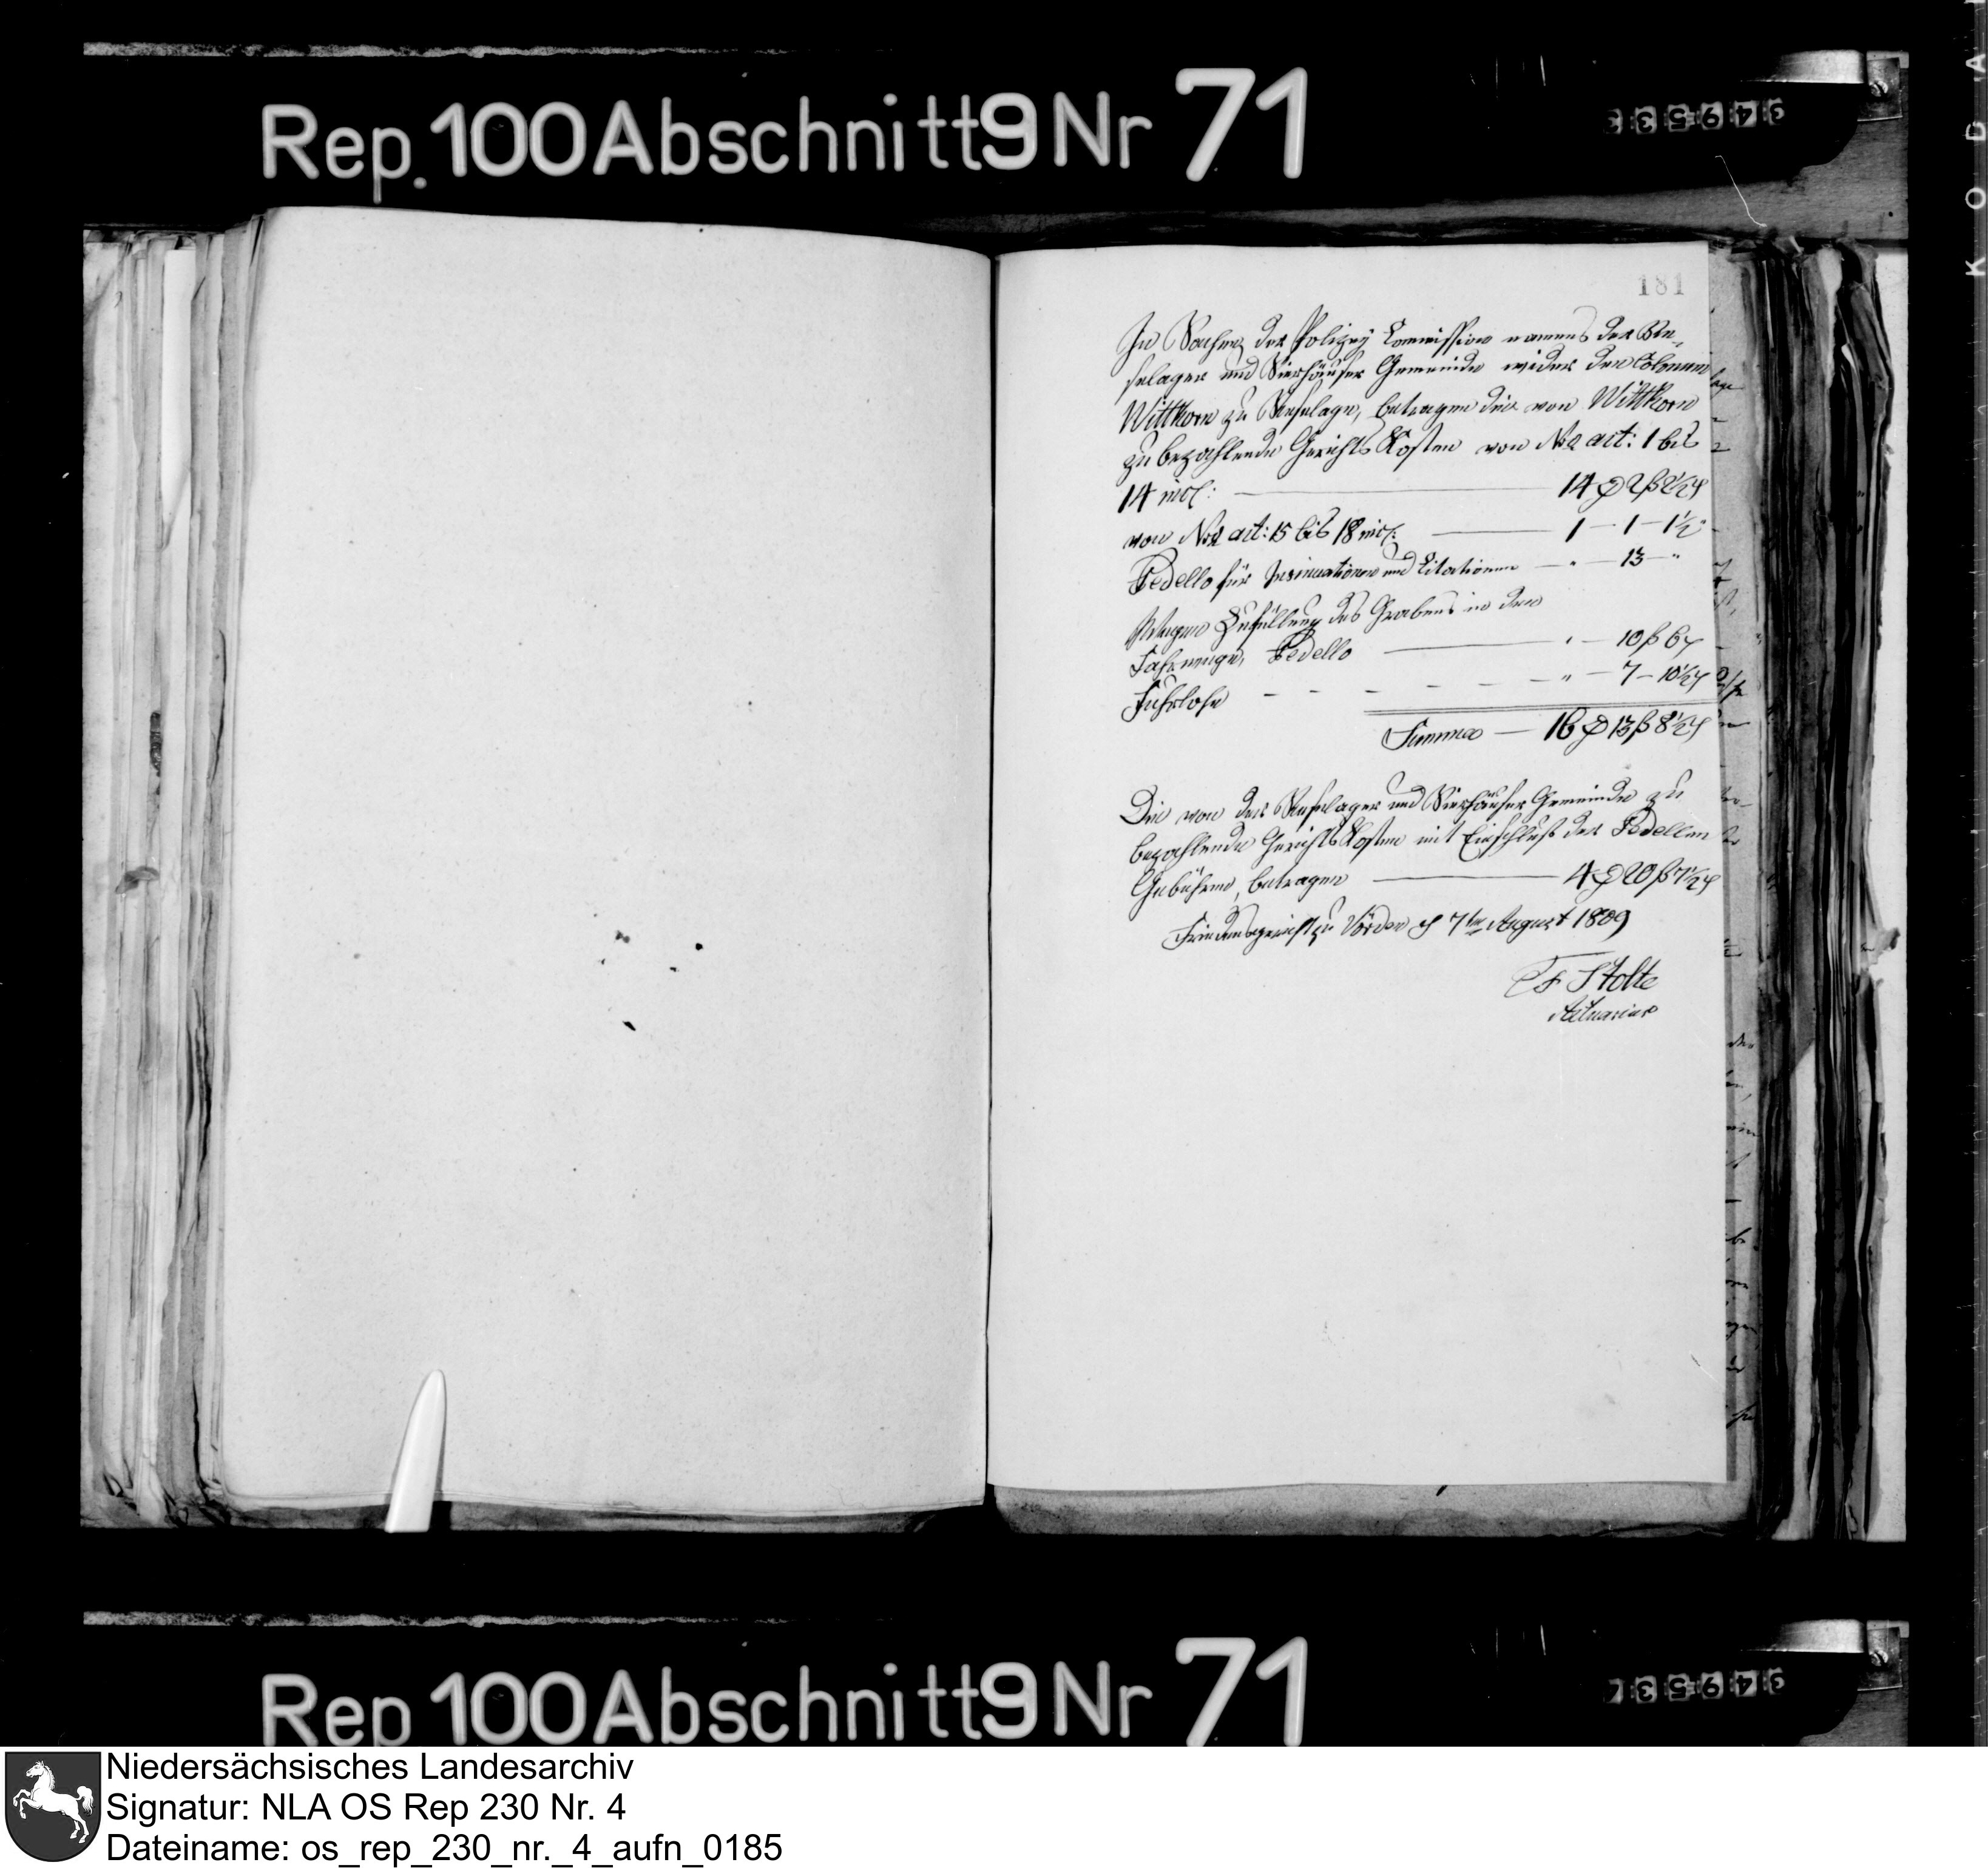 Rep. 100 Abschnitt 9 Nr 71
181
In Sachen der Polizey Commission namens der Rie-
selager und Vierhäuser Gemeinde wider den Colonum
Wittkorn zu Rieselage, betragen die von Wittkorn
zu bezahlende Gerichts Kosten von No act: 1 bis
14 incl: — 14 β 2½ ₰
von No act: 15 bis 18 incl. — 1 — 1 — 1½
Pedello für Insinuationen und Citationen — " — 13 — "
Wegen Zufüllung des Grabens in den
Pedello — " — 10 β 6 ₰
Fuhrlohn — — — " — 7 — 10½ ₰
Summa — 16 13 β 8½ ₰
Die von der Rieselager und Vierhäuser Gemeinde zu
bezahlende Gerichts Kosten mit Einschluß der Pedellen
Gebühren, betragen — 4 20 β 7½ ₰
Friedensgericht zu Vörden 7ten August 1809
F Stolte
Actuarius
Rep 100 Abschnitt 9 Nr 71
Niedersächsisches Landesarchiv
Signatur: NLA OS Rep 230 Nr. 4
Dateiname: os_rep_230_nr._4_aufn_0185